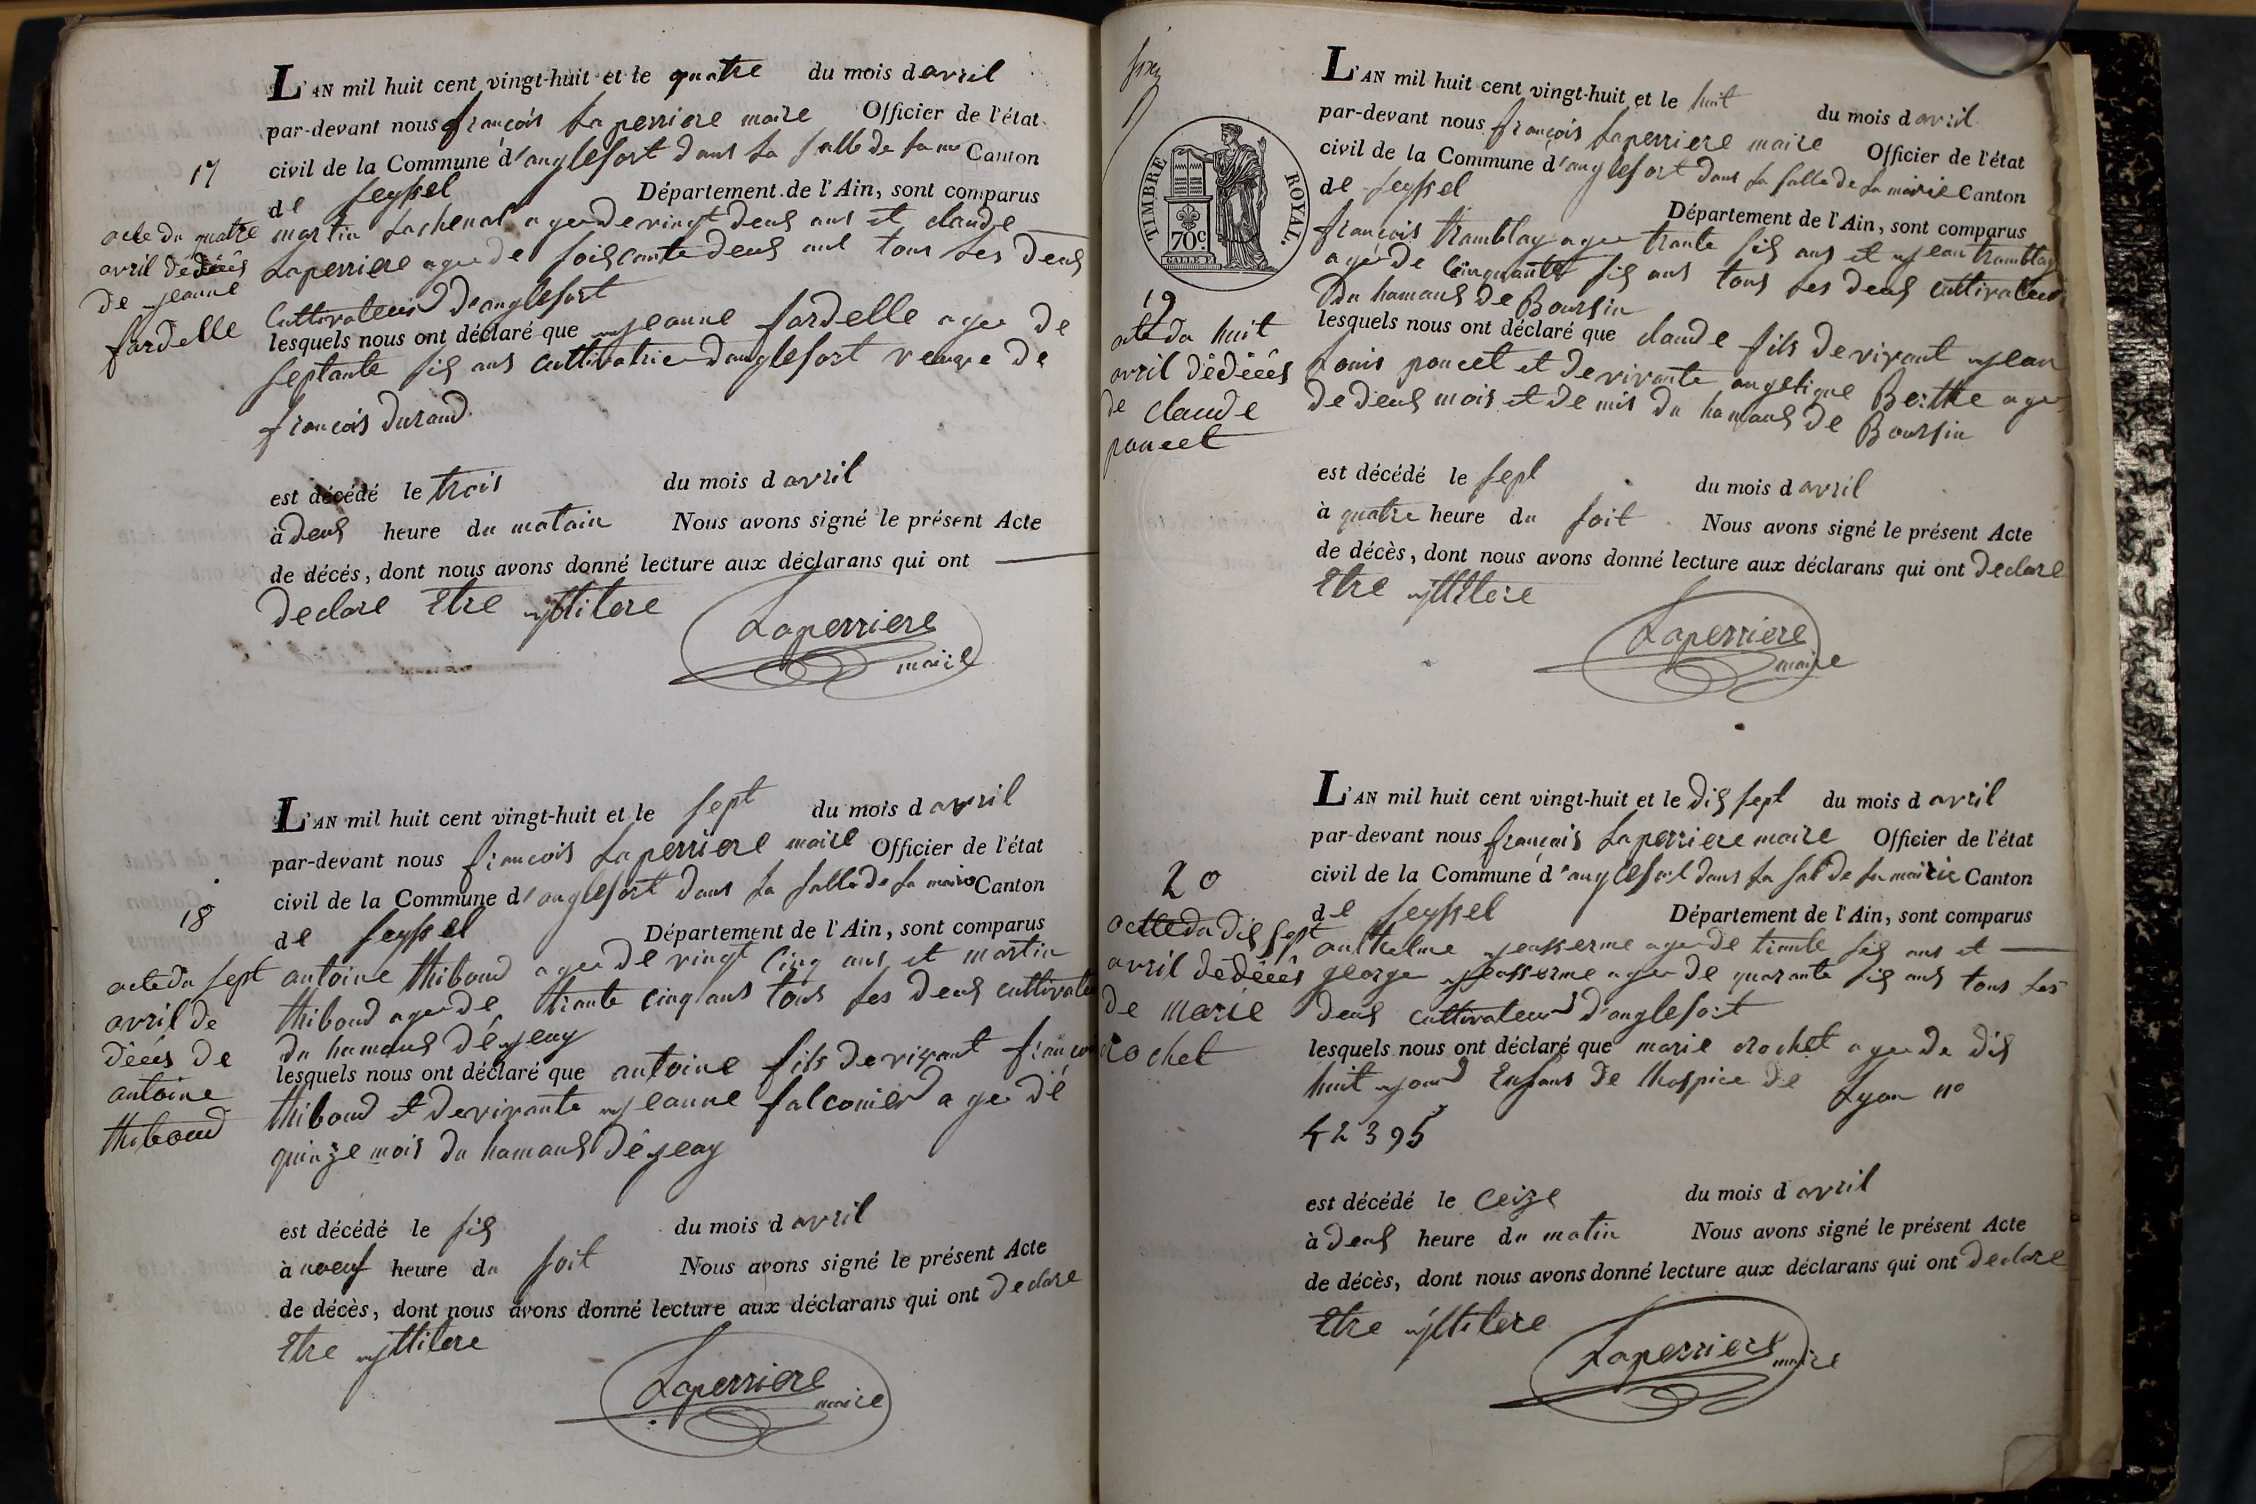 L'AN mil huit cent vingt-huit et le quatre du mois d avril
par-devant nous françois Laperriere maire Officier de l'état
civil de la Commune d'anglefort dans La Salle de La me Canton
de Seyssel Département de l'Ain, sont comparus
martin Lachenal agee de vingt deux ans et claude
Laperriere agee de soixante deux ans tous Les deux
Cultivateurs d'anglefort
lesquels nous ont déclaré que jeanne fardelle agee de
septante six ans cultivatrice d'anglefort veuve de
françois durand
est décédé le trois du mois d avril
à deux heure du matain Nous avons signé le présent Acte
de décès, dont nous avons donné lecture aux déclarans qui ont
declare Etre jllitere
Laperriere
maire
17
acte du quatre
avril dedéés
de jeanne
fardelle
L'AN mil huit cent vingt-huit et le sept du mois d avril
par-devant nous françois Laperriere maire Officier de l'état
civil de la Commune d'anglefort dans La Salle de La maire Canton
de Seyssel Département de l'Ain, sont comparus
antoine thiboud agee de vingt cinq ans et martin
thiboud agee de trante cinq ans tous Les deux cultivateu
du hamaux déjeay
lesquels nous ont déclaré que antoine fils de vivant françoi
thiboud et de vivante jeanne falconier agee dé
quinze mois du hamaux déjeay
est décédé le six du mois d avril
à noeuf heure du soit Nous avons signé le présent Acte
de décès, dont nous avons donné lecture aux déclarans qui ont declare
Etre jllitere
Laperriere
maire
18
acte du sept
avril de
déés de
antoine
thiboud
TIMBRE ROYAL.
70 c.
L'AN mil huit cent vingt-huit et le huit du mois d avril
par-devant nous françois Laperriere maire Officier de l'état
civil de la Commune d'anglefort dans La Salle de La mairie Canton
de Seyssel Département de l'Ain, sont comparus
françois tramblay agee trante six ans et jean tramblay
agee de cinquante six ans tous Les deux cultivateur
du hamaux de Boursin
lesquels nous ont déclaré que claude fils de vivant jean
Louis poncet et de vivante angelique Berthe agee
de deux mois et demis du hamaux de Boursin
est décédé le sept du mois d avril
à quatre heure du soit Nous avons signé le présent Acte
de décès, dont nous avons donné lecture aux déclarans qui ont declare
Etre jllitere
Laperriere
maire
19
acte du huit
avril dédéés
de claude
poncet
L'AN mil huit cent vingt-huit et le dix sept du mois d avril
par-devant nous françois Laperriere maire Officier de l'état
civil de la Commune d'anglefort dans La Sal de La mairie Canton
de Seyssel Département de l'Ain, sont comparus
anthelme jeasserme agee de trante six ans et
george jeasserme agee de quarante six ans tous Les
deux cultivateurs d'anglefort
lesquels nous ont déclaré que marie rochet agee de dix
huit jours Enfans de lhospice de Lyon no
42395
est décédé le ceize du mois d avril
à deux heure du matin Nous avons signé le présent Acte
de décès, dont nous avons donné lecture aux déclarans qui ont declare
Etre jllitere
Laperriere
maire
20
acte du dix sept
avril dédéés
de marie
rochet